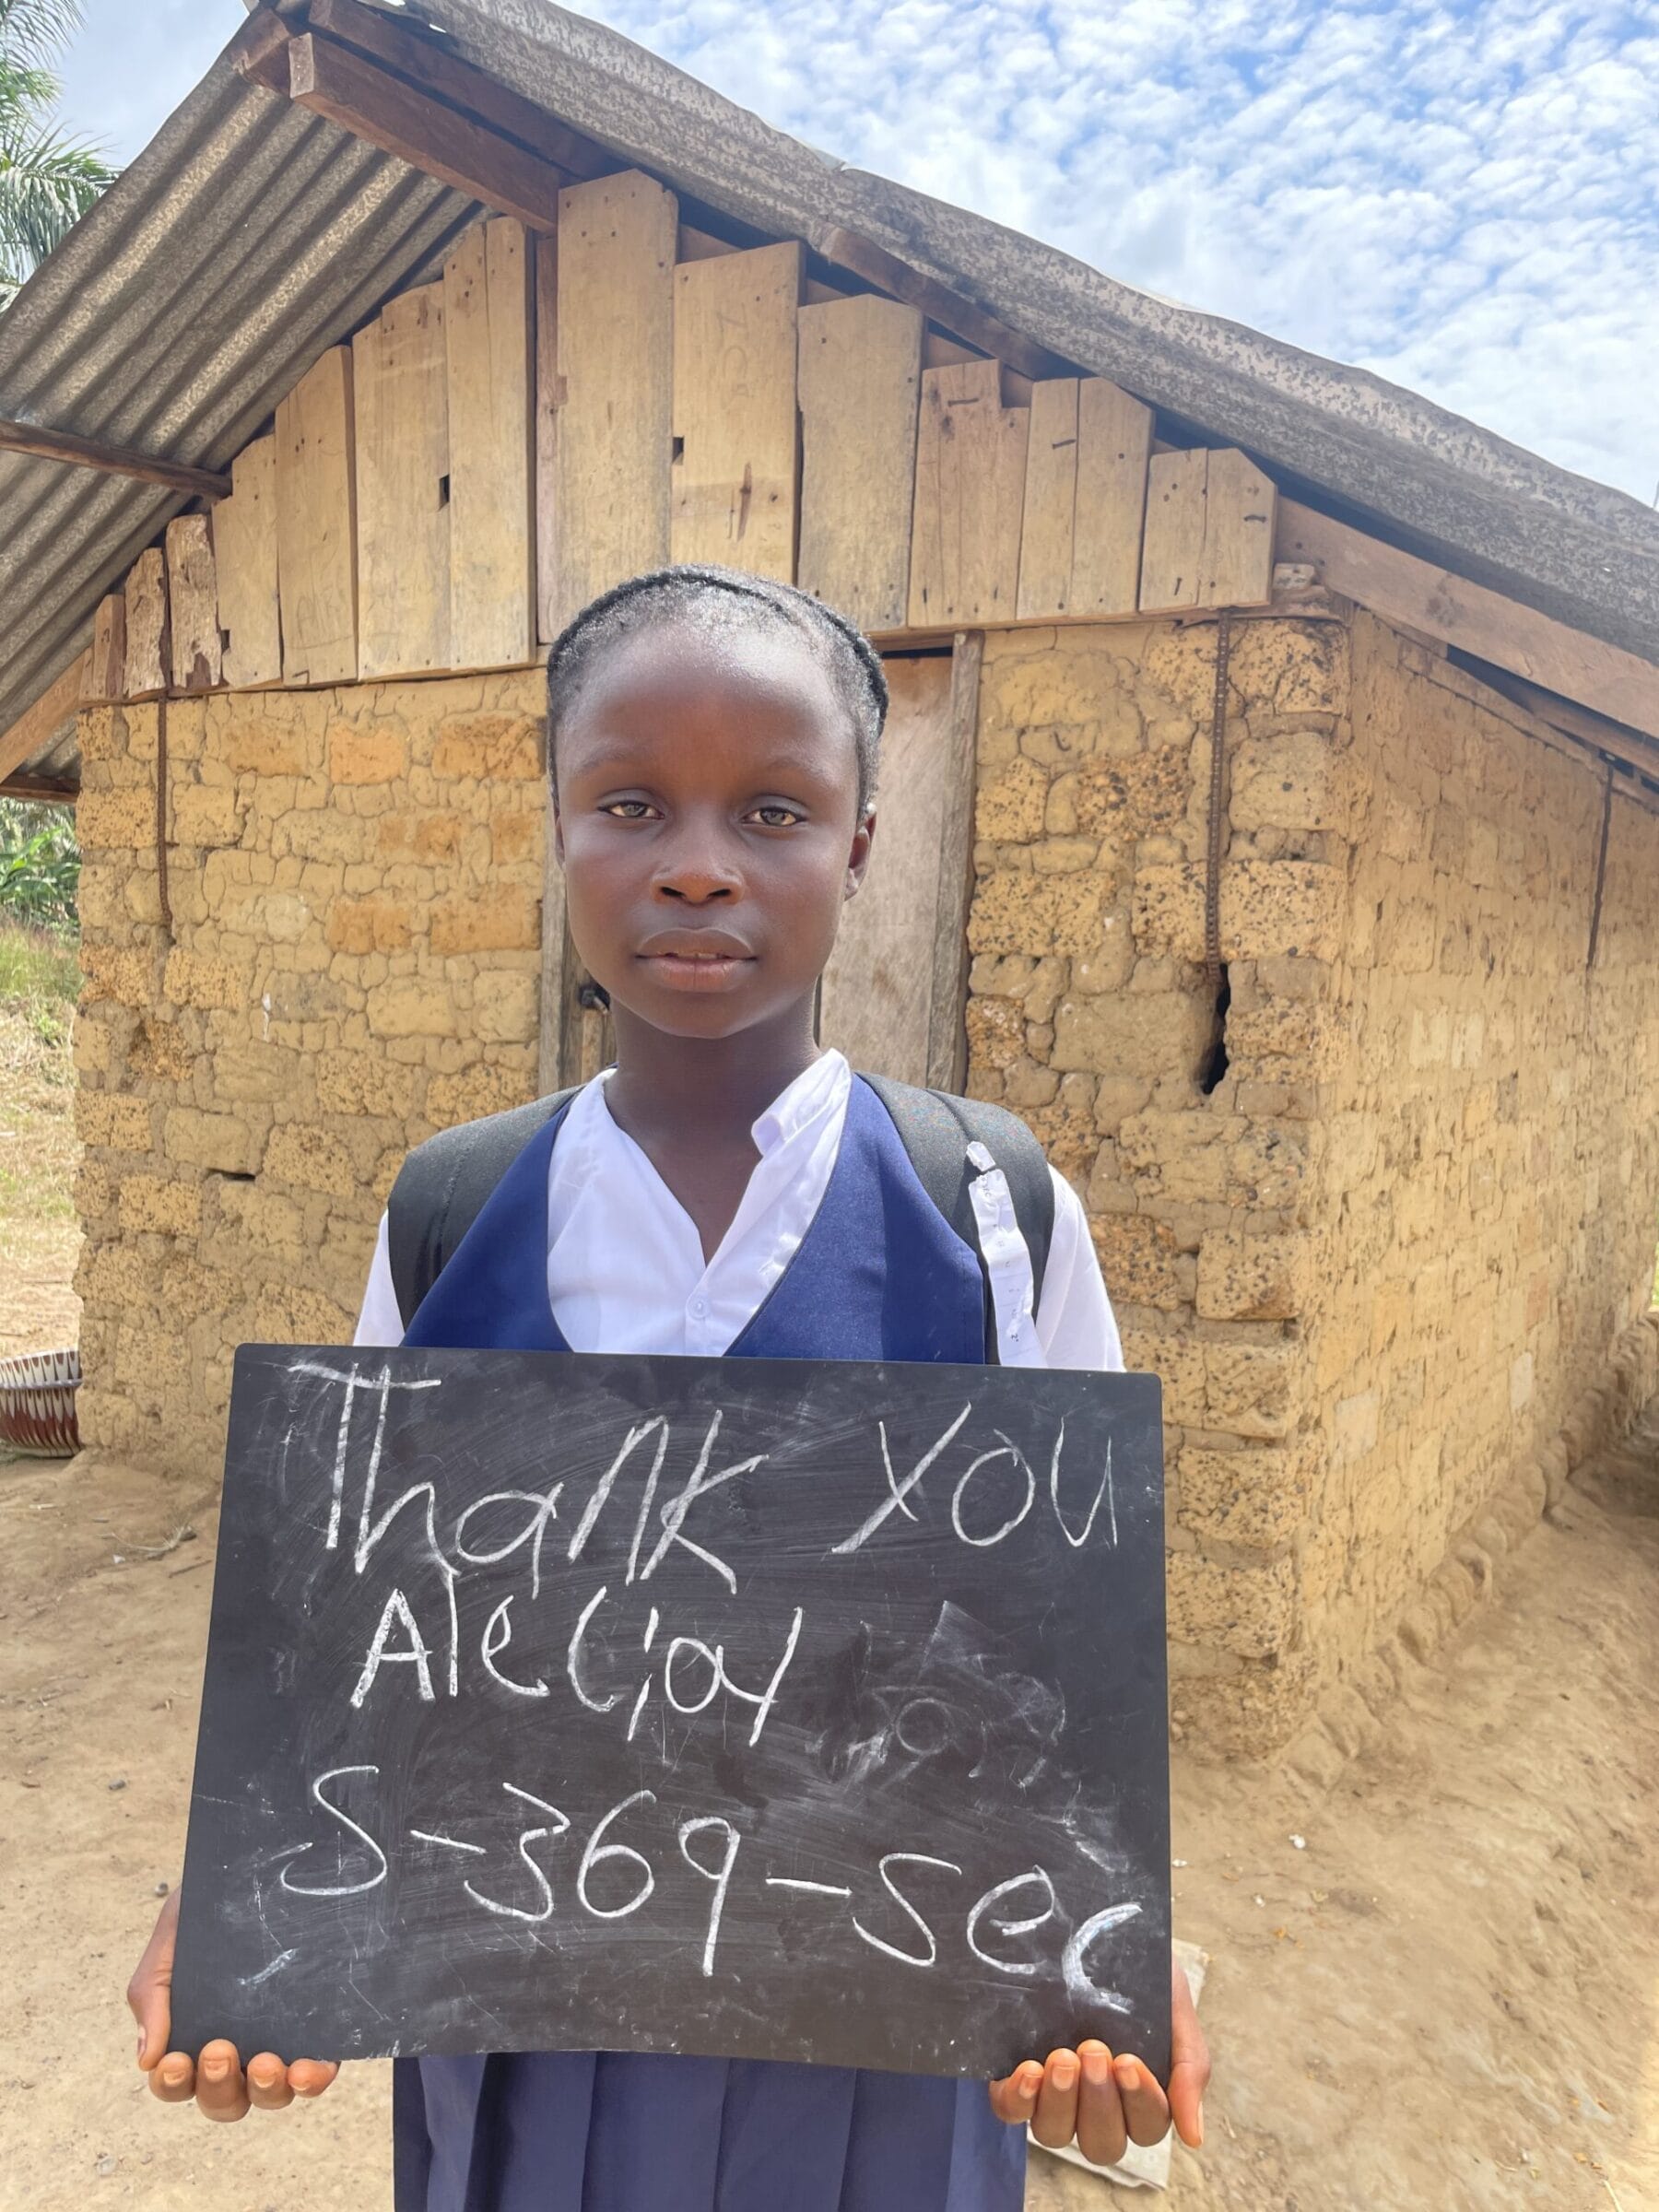 Thank You
Aleciay
S-369-Sec